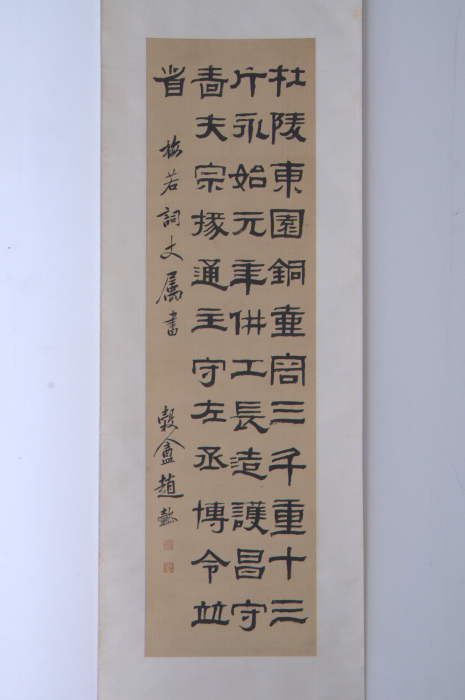 杜陵東園銅壺容三斗重十三
斤永始元年供工長造護昌守
嗇夫宗掾通主守左丞博令並
省
梅若詞丈属書 穀盦趙懿